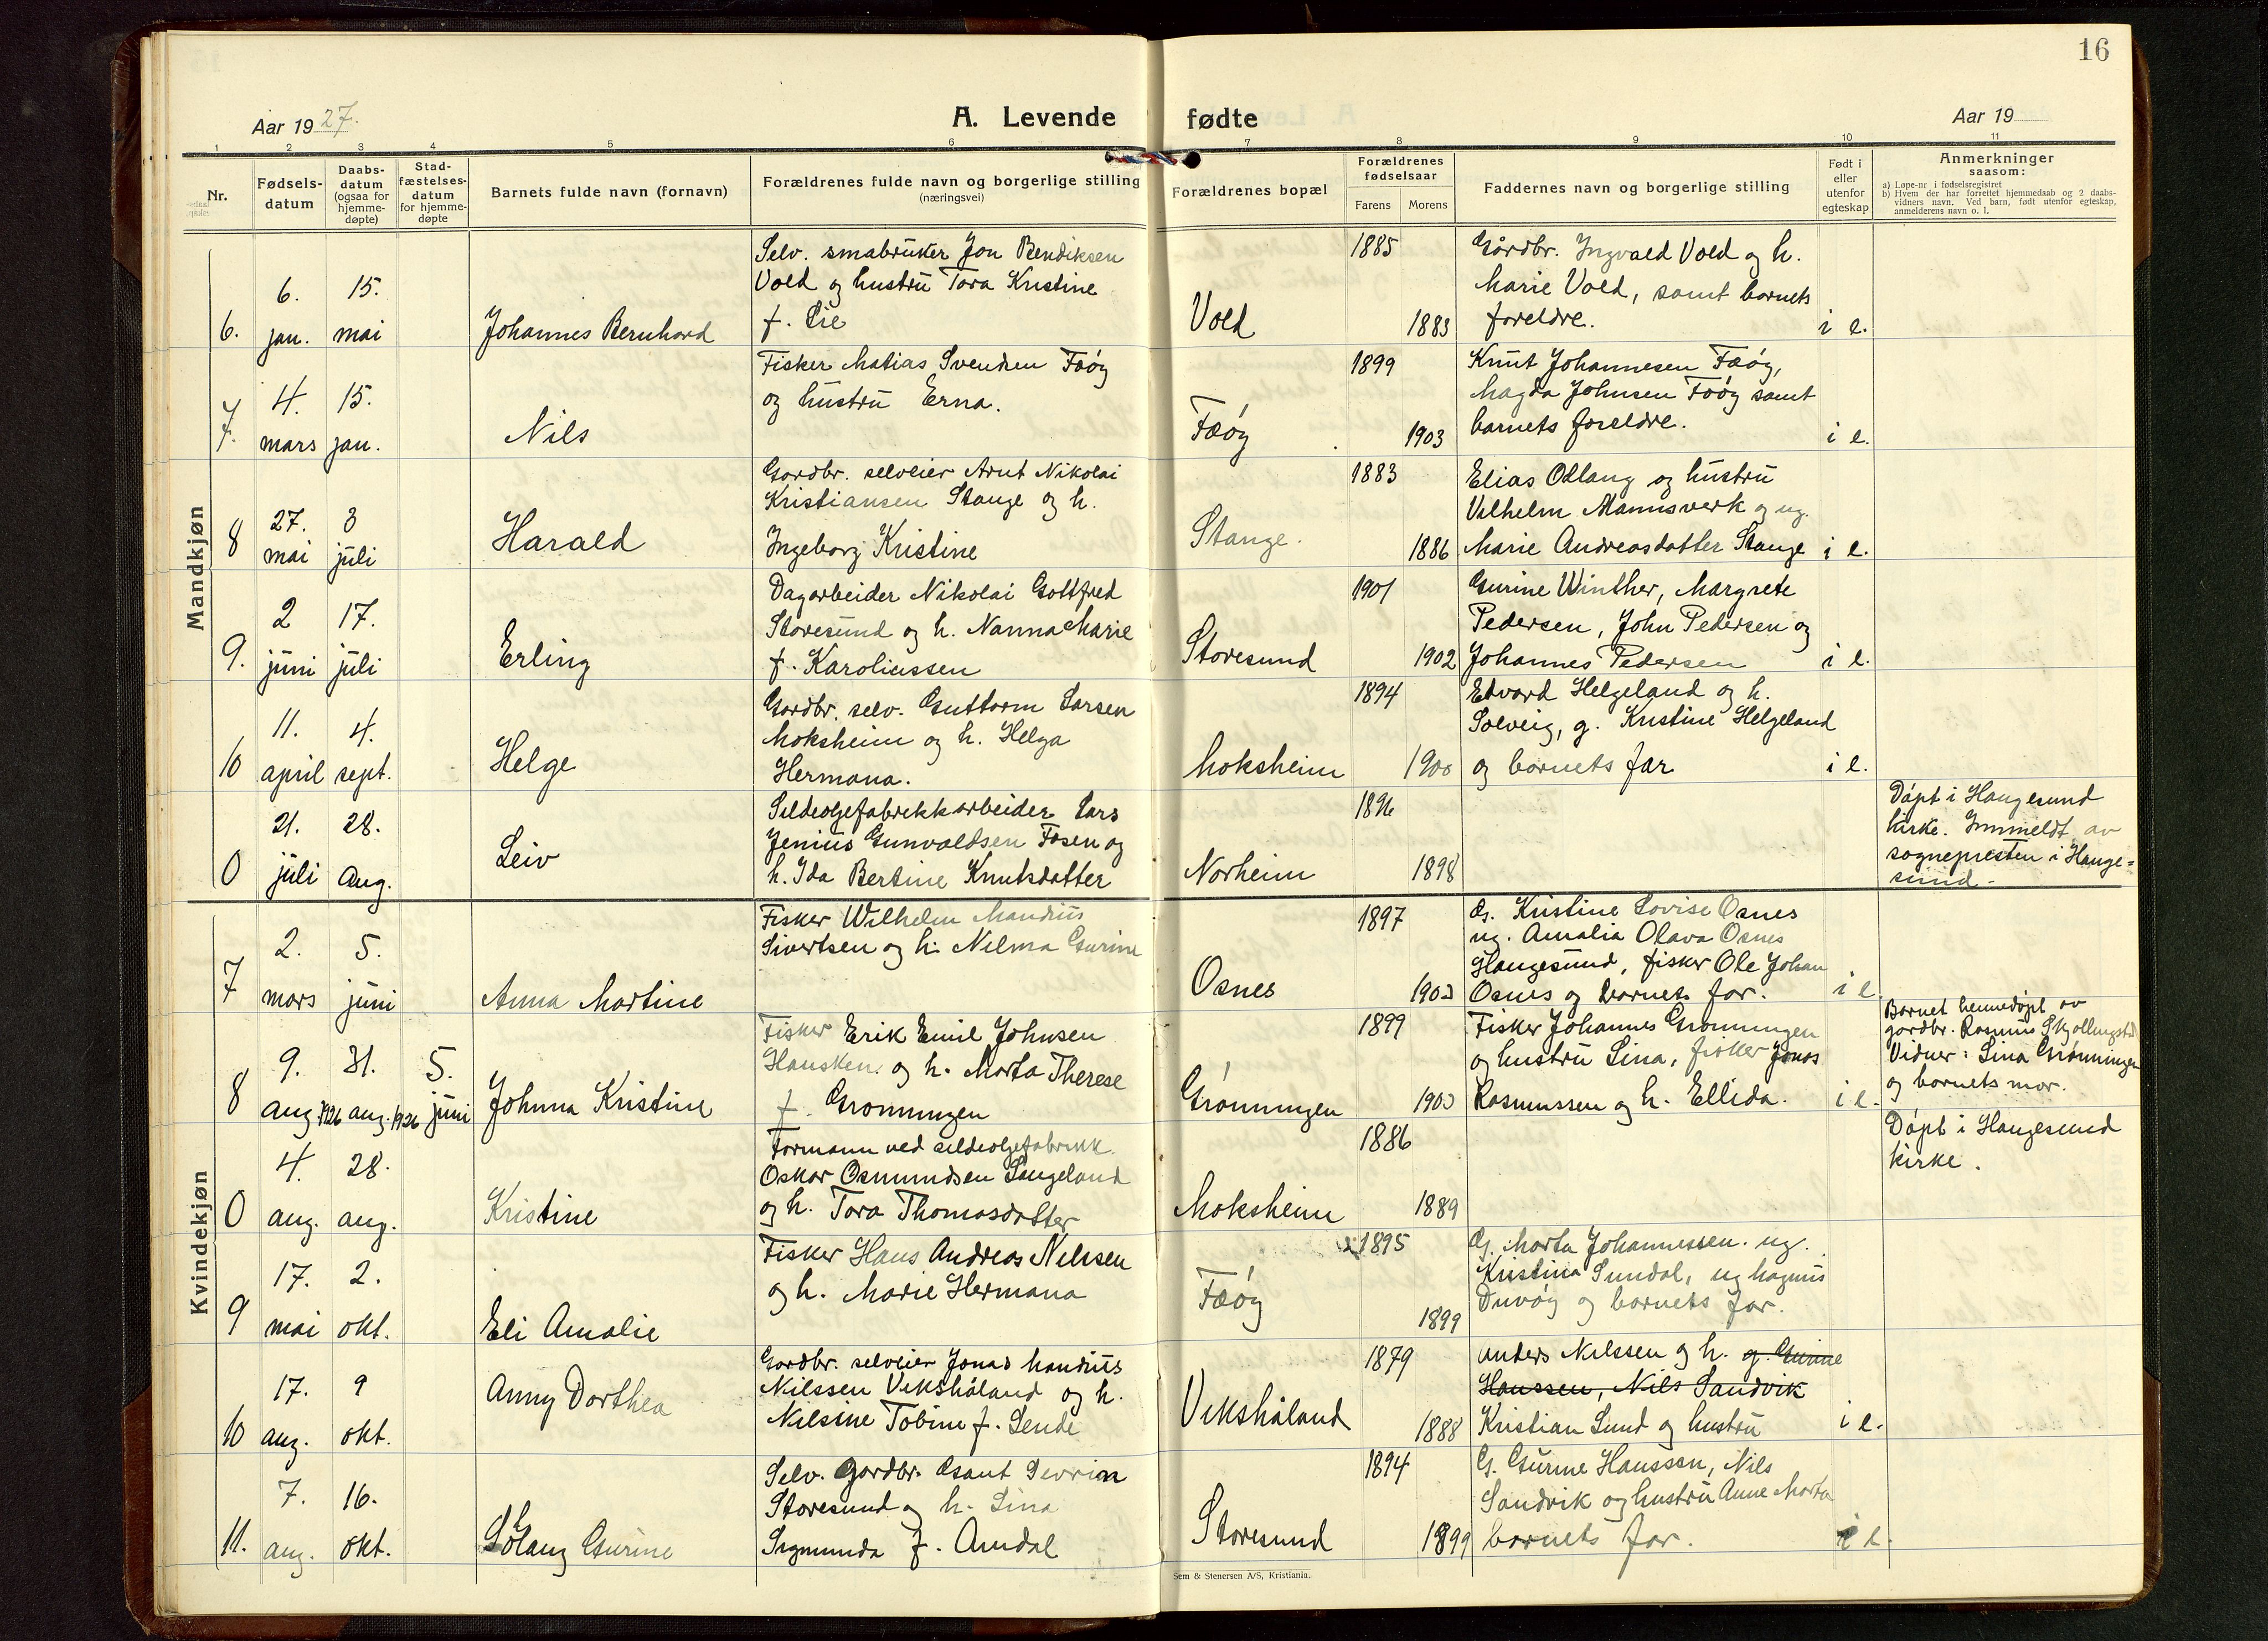 16
Aar 1927.
A. Levende fødte
Aar 19
1 2 3 4 5 6 7 8 9 10 11
Nr.
Fødselsdatum
Daabsdatum (ogsaa for hjemmedøpte)
Stadfæstelsesdatum for hjemmedøpte
Barnets fulde navn (fornavn)
Forældrenes fulde navn og borgerlige stilling (næringsvei)
Forældrenes bopæl
Forældrenes fødselsaar
Farens Morens
Faddernes navn og borgerlige stilling
Født i eller utenfor egteskap
Anmerkninger saasom:
a) Løpe-nr i fødselsregistret
b) Hvem der har forrettet hjemmedaab og 2 daabsvidners navn. Ved barn, født utenfor egteskap, anmelderens navn o. l.
Mandkjøn
6. 6. jan. 15. mai Johannes Bernhard
Selv. smabruker Jon Bendiksen
Vold og hustru Tora Kristine
f. Lie
Vold 1885 1883
Gårdbr. Ingvald Vold og h.
Marie Vold, samt barnets
foreldre.
i e.
7. 4. mars 15. jan. Nils
Fisker Matias Svendsen Fæøy
og hustru Erna.
Fæøy 1899 1903
Knut Johannesen Fæøy,
Magda Johnsen Fæøy samt
barnets foreldre.
i e.
8 27. mai 3 juli Harald
Gardbr. selveier Arnt Nikolai
Kristiansen Stange og h.
Ingeborg Kristine
Stange. 1883 1886
Elias Odlang og hustru
Vilhelm Mannsverk og ug.
Marie Andreasdatter Stange
i e.
9. 2 juni 17. juli Erling
Dagarbeider Nikolai Gottfred
Storesund og h. Nanna Marie
f. Karoliussen
Storesund 1901 1902
Gurine Winther, Margrete
Pedersen, John Pedersen og
Johannes Pedersen
i e.
10 11. april 4. sept. Helge
Gardbr. selv. Guttorm Larsen
Moksheim og h. Helga
Hermana.
Moksheim 1894 1900
Edvard Helgeland og h.
Solveig, g. Kristine Helgeland
og barnets far
i e.
0 21. juli 28. Aug. Leiv
Sildeoljefabrikkarbeider Lars
Jenius Gunvaldsen Fosen og
h. Ida Bertine Knutsdatter
Norheim 1896 1898
Døpt i Haugesund
kirke. Innmeldt av
sognepresten i Hauge=
sund.
Kvindekjøn
7 2. mars 5. juni Anna Martine
Fisker Wilhelm Mandius
Sivertsen og h. Nilma Gurine
Osnes 1897 1902
G. Kristine Lovise Osnes
ug. Amalia Olava Osnes
Haugesund, fisker Ole Johan
Osnes og barnets far.
i e.
8 9. aug. 1926 31. aug. 1926 5. juni Johnna Kristine
Fisker Erik Emil Johnsen
Hausken og h. Marta Therese
f. Grønningen
Grønningen 1899 1903
Fisker Johannes Grønningen
og hustru Lina, fisker Jonas
Rasmussen og h. Ellida.
i e.
Barnet hemedøpt av
gardbr. Rasmus Skjollingstad
Vidner: Lina Grønningen
og barnets mor.
0 4. aug. 28. aug. Kristine
Formann ved sildeoljefabrikk
Oskar Osmundsen Langeland
og h. Tora Thomasdatter
Moksheim 1886 1889
Døpt i Haugesund
kirke.
9 17. mai 2. okt. Eli Amalie
Fisker Hans Andreas Nilssen
og h. Marie Hermana
Fæøy 1895 1899
G. Marta Johannessen. ug.
Kristina Sundal, ug Magnus
Duvøy og barnets far.
10 17. aug. 9 okt. Anny Dorthea
Gardbr. selveier Jonas Mandius
Nilssen Vikshåland og h.
Nilsine Tobine f. Lende
Vikshåland 1879 1888
Anders Nilssen og h. g. Gurine
Hanssen, Nils Sandvik
Kristian Lund og hustru
i e.
11. 7. aug. 16. okt. Sólaug Gurine
Selv. Gardbr. Gaut Severin
Storesund og h. Lina
Sigmunda f. Amdal
Storesund 1894 1899
G. Gurine Hanssen, Nils
Sandvik og hustru Anne Marta
barnets far.
i e.
Sem & Stenersen A/S, Kristiania.